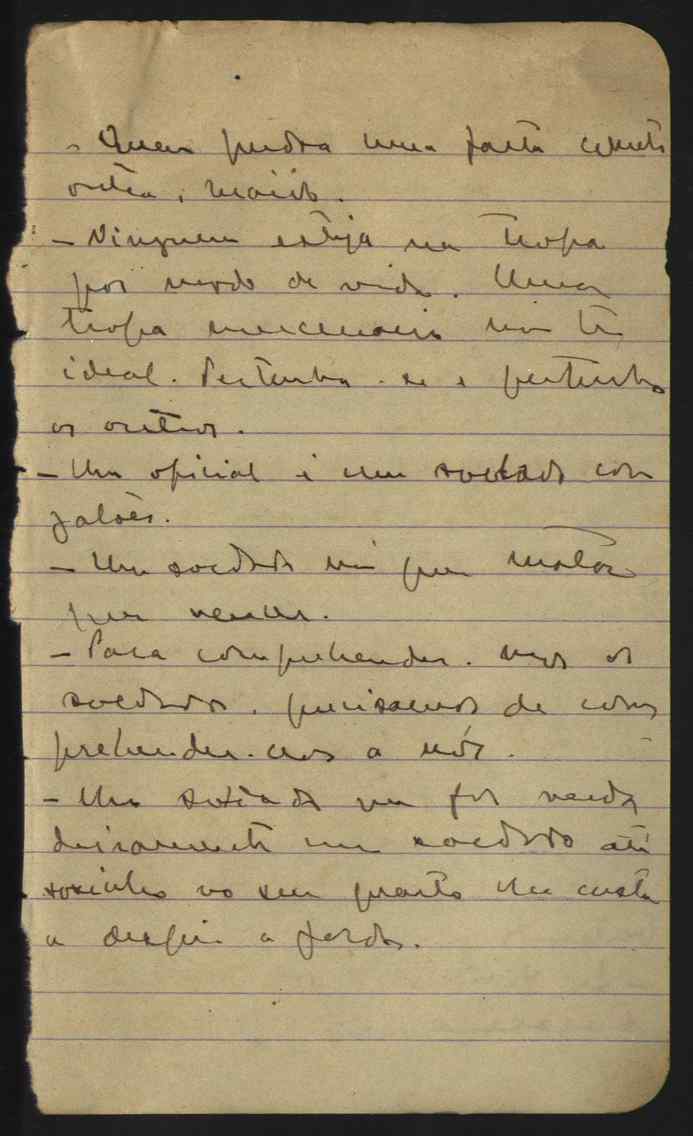 - Quem perdoa uma falta comete
outra, maior.
- Ninguem esteja na tropa
por modo de vida. Uma
tropa mercenaria não tem
ideal. Perturba-se e perturba
os outros.
- Um oficial é um soldado com
galões.
- Um soldado não quer matar
quer vencer.
- Para comprehender-mos os
soldados, precisamos de com
prehender-nos a nós.
- Um soldado que for verda
deiramente um soldado até
sosinho no seu quarto lhe custa
a despir a farda.